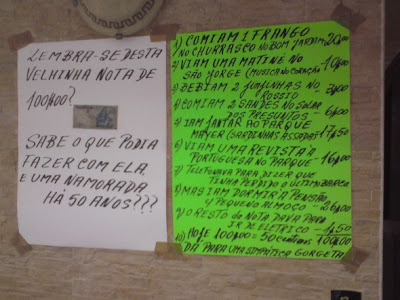 LEMBRA-SE DESTA
VELHINHA NOTA DE
100$00?
SABE O QUE PODIA
FAZER COM ELA
E UMA NAMORADA
HÁ 50 ANOS???
1) COMIAM 1 FRANGO
NO CHURRASCO NO BOM JARDIM 20$00
2) VIAM UMA MATINÉ NO
SÃO JORGE (MUSICA NO CORAÇÃO) 10$00
3) BEBIAM 2 GINJINHAS NO
ROSSIO 3$00
4) COMIAM 2 SANDES NO SOLAR
DOS PRESUNTOS - 6$00
5) IAM JANTAR AO PARQUE
MAYER (SARDINHAS ASSADAS) 17$50
6) VIAM UMA REVISTA À
PORTUGUESA NO PARQUE - 16$00
7) TELEFONAVA PARA DIZER QUE
TINHA PERDIDO O ULTIMO BARCO
8) MAS IAM DORMIR À PENSÃO
E PEQUENO ALMOÇO - 26$00
9) O RESTO DA NOTA DAVA PARA
IR DE ELETRICO - 1$50
100$00
10) HOJE 100$00 = 50 Centimos
DÁ PARA UMA SIMPÁTICA GORGETA